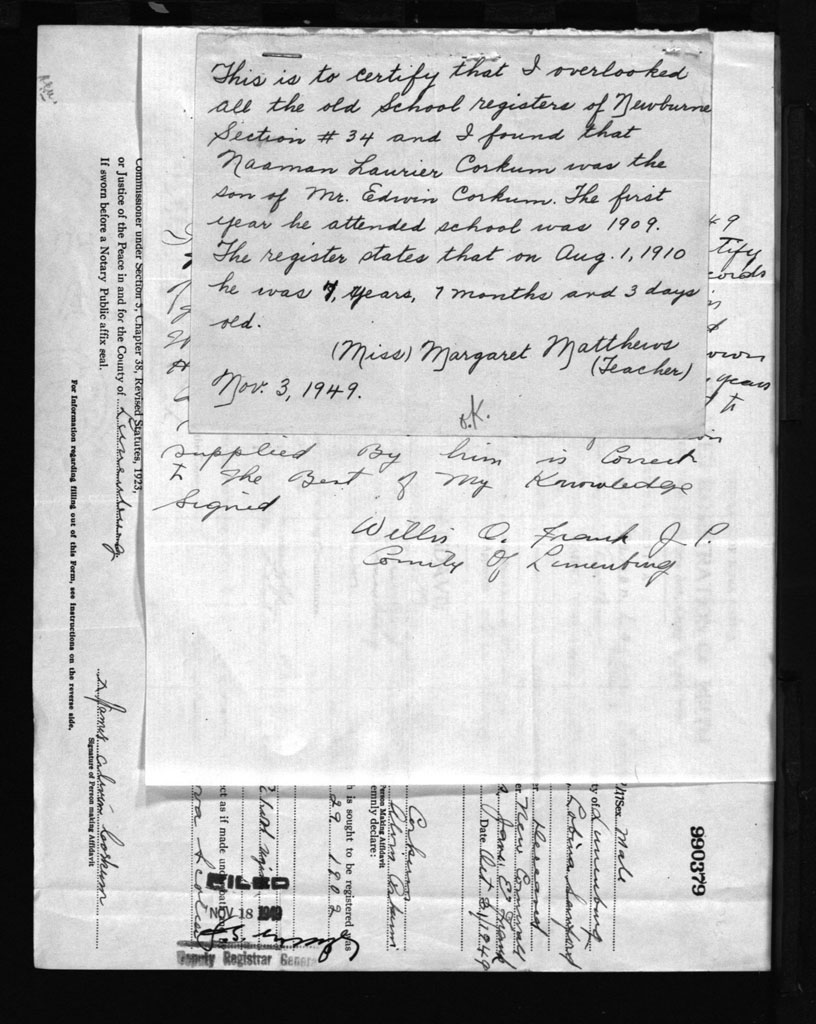 This is to certify that I overlooked
all the old School registers of Newburne
Section # 34 and I found that
Naaman Laurier Corkum was the
son of Mr. Edwin Corkum. The first
year he attended school was 1909.
The register states that on Aug. 1, 1910
he was 7, years, 7 months and 3 days
old.
(Miss) Margaret Matthews
(Teacher)
Nov. 3, 1949.
O.K.
49
tify
years
supplied By him is Correct
to The Best of My Knowledge
Signed
Willis O. Frank J. P.
County Of Lunenburg
Commissioner under Section 3, Chapter 38, Revised Statutes, 1923,
or Justice of the Peace in and for the County of Lunenburg
If sworn before a Notary Public affix seal.
For Information regarding filling out of this Form, see instructions on the reverse side.
Corkum
Signature of Person making Affidavit
990379
Sex Male
ty of Lunenburg
New Cornwall
Date Oct 31/1949
Person Making Affidavit
emnly declare:
h is sought to be registered was
29 1902
ct as if made und
FILED
NOV 18 1949
Deputy Registrar General